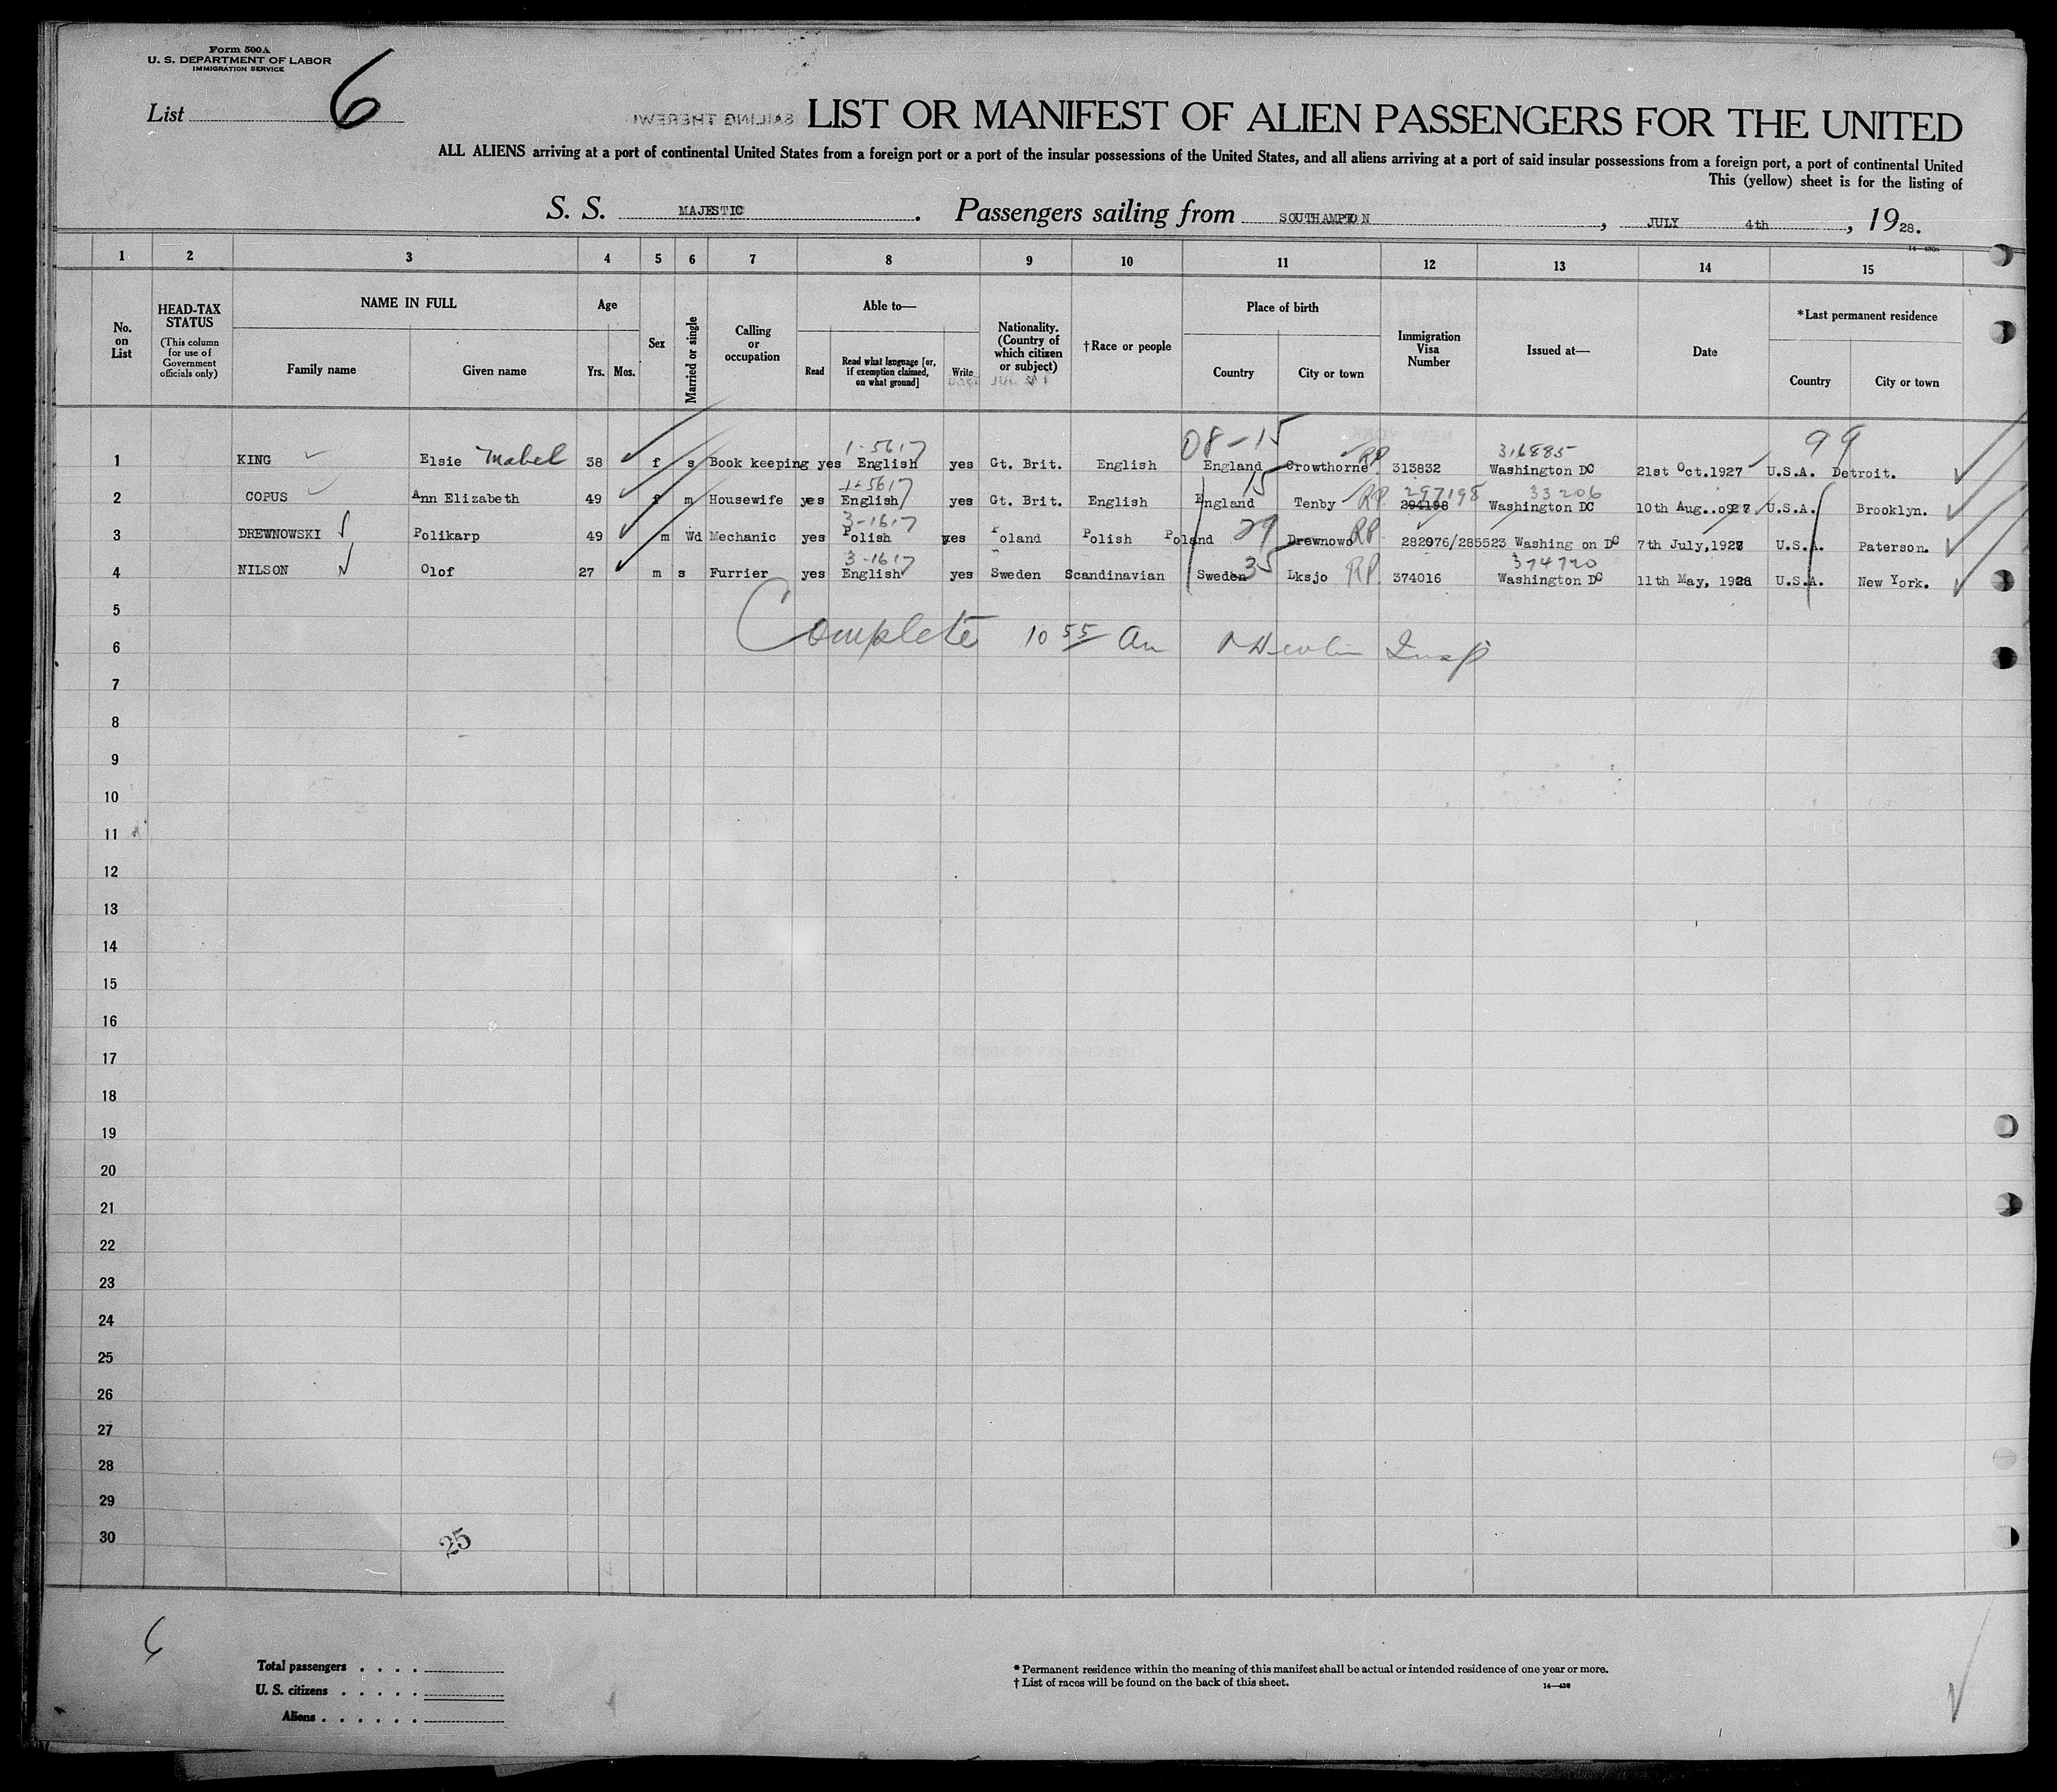 Form 500A
U. S. DEPARTMENT OF LABOR
IMMIGRATION SERVICE
List 6
SAILING THEREWI
LIST OR MANIFEST OF ALIEN PASSENGERS FOR THE UNITED
ALL ALIENS arriving at a port of continental United States from a foreign port or a port of the insular possessions of the United States, and all aliens arriving at a port of said insular possessions from a foreign port, a port of continental United
This (yellow) sheet is for the listing of
S. S. MAJESTIC. Passengers sailing from SOUTHAMPTON, JULY 4th, 1928.
1 2 3 4 5 6 7 8 9 10 11 12 13 14 15
No. on List
HEAD-TAX STATUS
(This column for use of Government officials only)
NAME IN FULL
Family name
Given name
Age
Yrs.
Mos.
Sex
Married or single
Calling or occupation
Able to—
Read
Read what language [or, if exemption claimed, on what ground]
Write
Nationality. (Country of which citizen or subject)
†Race or people
Place of birth
Country
City or town
Immigration Visa Number
Issued at—
Date
*Last permanent residence
Country
City or town
1-5617 08-15 RP 316885 99
1 KING Elsie Mabel 38 f s Book keeping yes English yes Gt. Brit. English England Crowthorne 313832 Washington DC 21st Oct.1927 U.S.A. Detroit.
1-5617 15 RP 297198 33206
2 COPUS Ann Elizabeth 49 f m Housewife yes English yes Gt. Brit. English England Tenby 294198 Washington DC 10th Aug. U.S.A. Brooklyn.
3-1617 29 RP
3 DREWNOWSKI Polikarp 49 m Wd Mechanic yes Polish yes Poland Polish Poland Drewnowo 282976/285523 Washing on DC 7th July, U.S.A. Paterson.
3-1617 35 RP 374720
4 NILSON Olof 27 m s Furrier yes English yes Sweden Scandinavian Sweden Lksjo 374016 Washington DC 11th May, 1928 U.S.A. New York.
5
Complete 10 55 Am Insp
6
7
8
9
10
11
12
13
14
15
16
17
18
19
20
21
22
23
24
25
26
27
28
29
30
25
Total passengers . . . .
U. S. citizens . . . . .
Aliens . . . . . .
* Permanent residence within the meaning of this manifest shall be actual or intended residence of one year or more.
† List of races will be found on the back of this sheet.
14—430